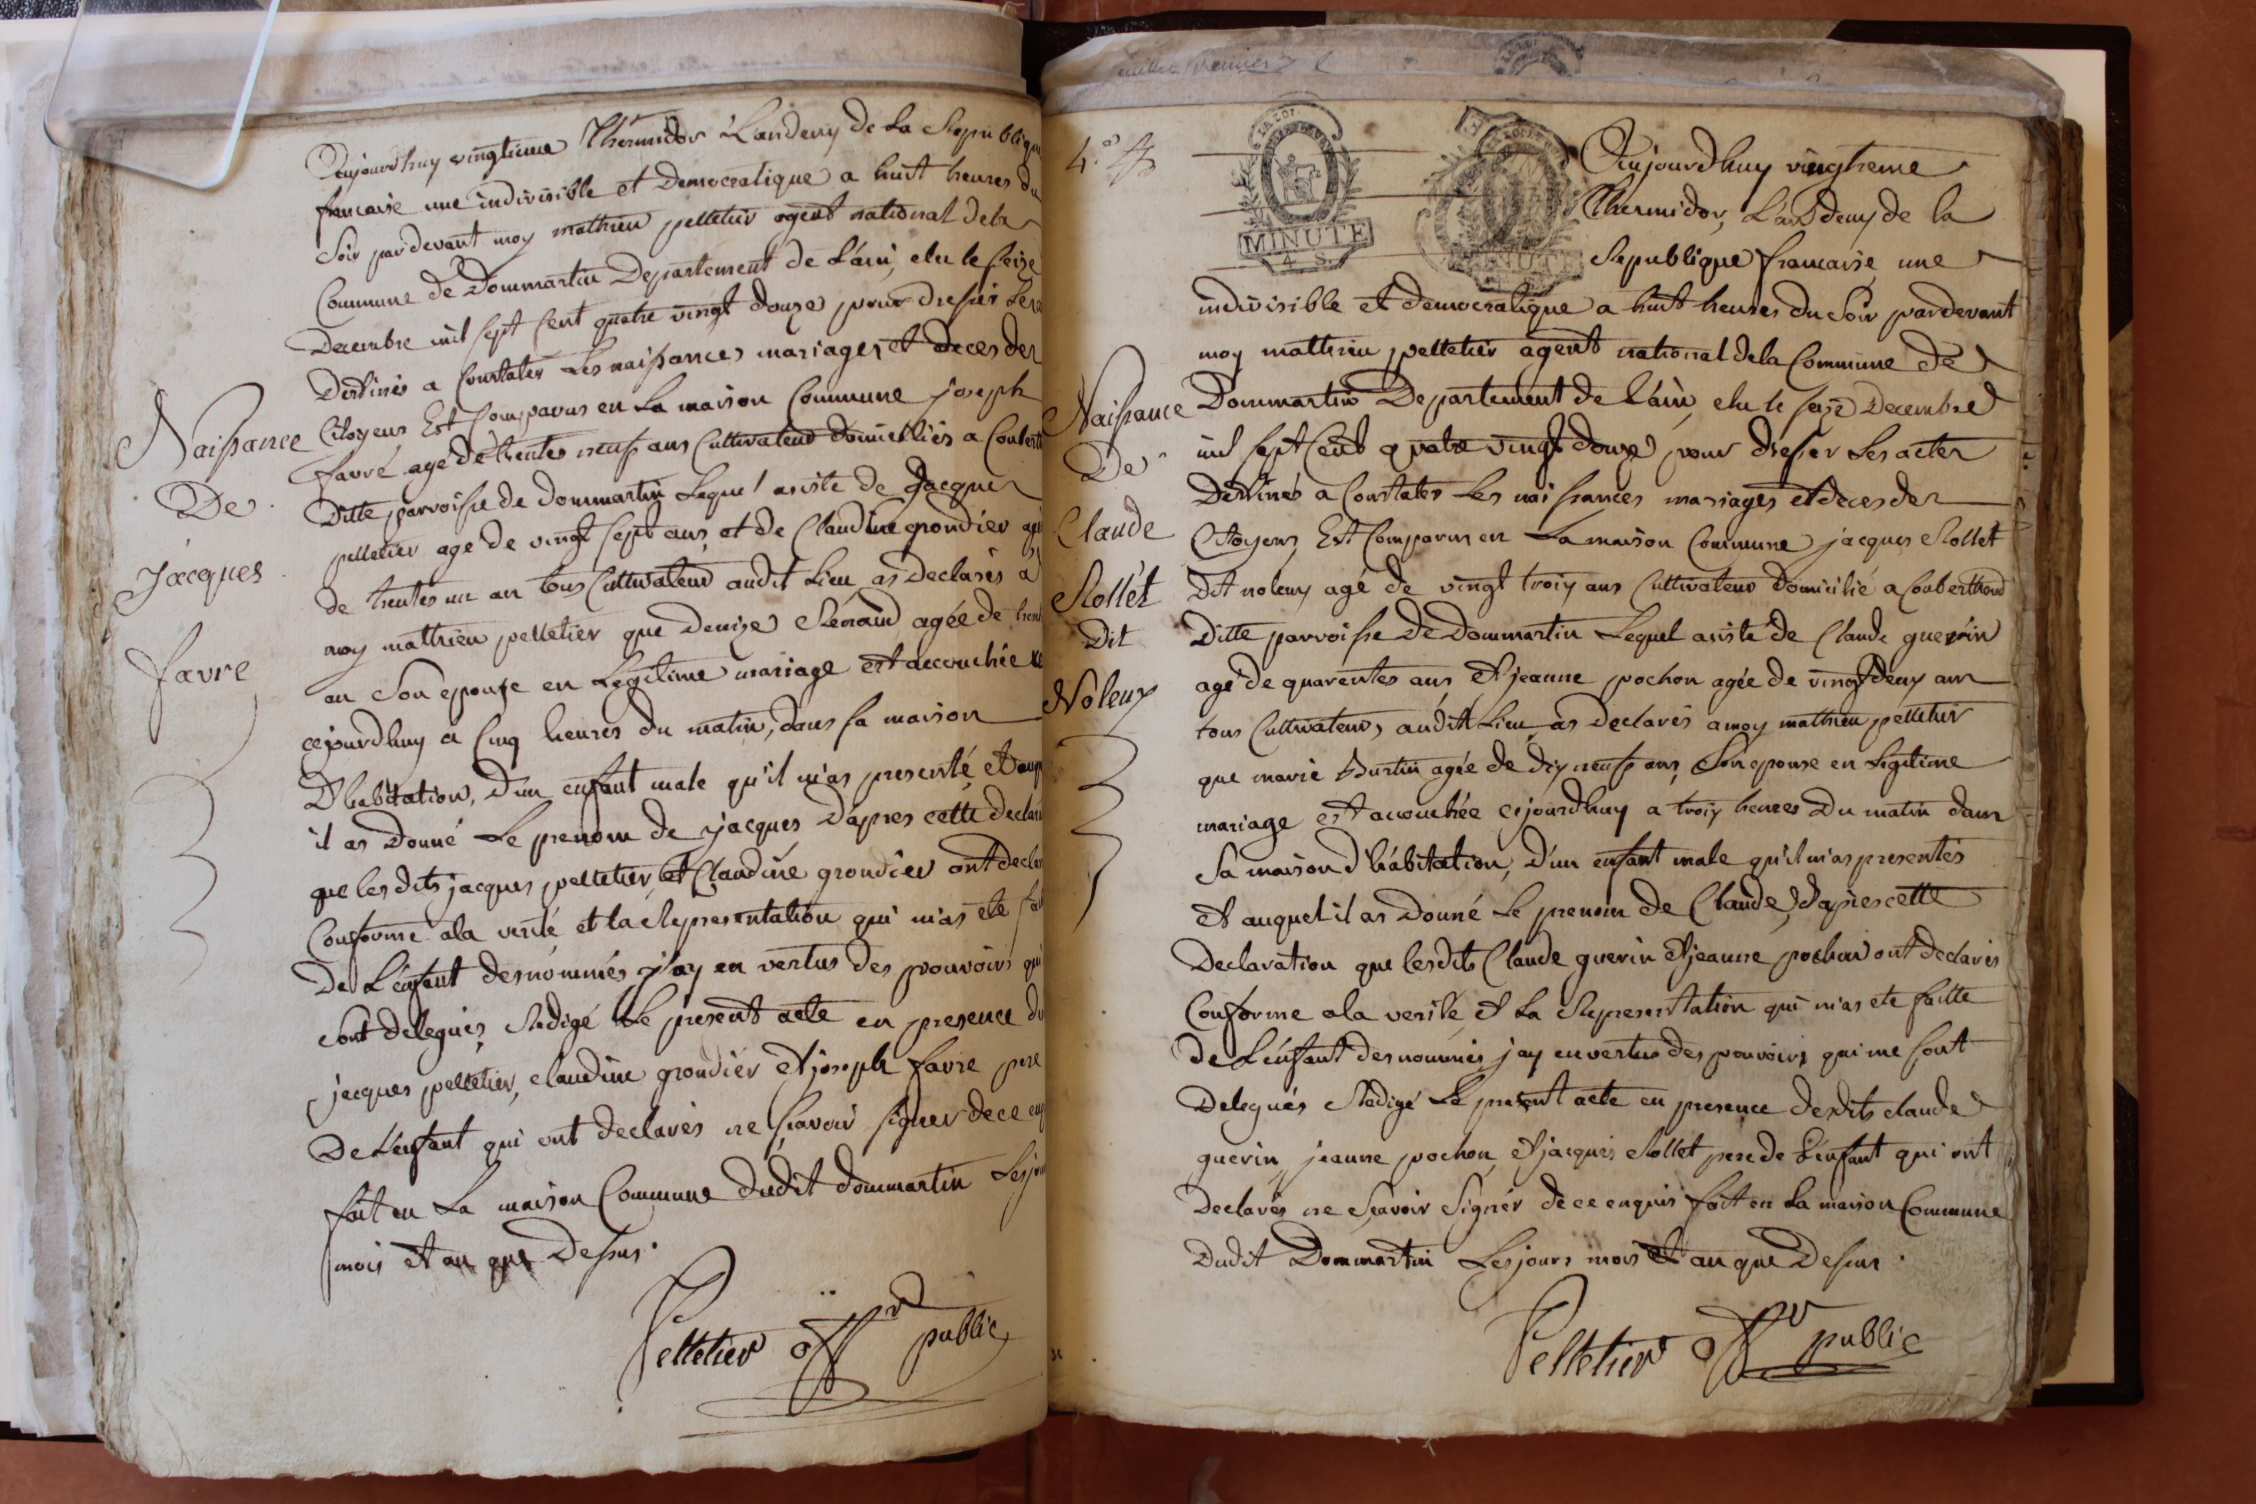 Aujourdhuy vingtieme Thermidor L'andeux de La Republique
francaise une indivisible et Democratique a huit heures du
Soir pardevant moy mathieu pelletier agent national dela
Commune de Dommartin Departement de L'ain, elu le seize
Decembre mil sept Cent quatre vingt douze pour dresser Les
Destinés a Constater Les naissances mariages et deces des
Citoyens Est Comparus en La maison Commune joseph
favre agé de trentes neuf ans Cultivateur domiciliés a
Ditte parroisse de dommartin Lequel asisté de Jacques
pelletier age de vingt sept ans et de Claudine grondier
de trentes un an tous Cultivateur audit Lieu as Declarés a
moy mathieu pelletier que Denize Renaud agée de
an Son epouse en Legitime mariage est accouchée
cejourdhuy a Cinq heures du matin, dans sa maison
D'habitation, d'un enfant male qu'il m'as presenté Et
il as Donné Le prenom de jacques D'apres cette
que lesdits jacques pelletier, et Claudine grondier ont
Conforme ala verité et la Representation qui m'as eté
De L'enfant desnommés j'ay en vertus des pouvoirs qui
Sont delegués Redigé Le present acte en presence
jacques pelletier, claudine grondier Et joseph favre pere
De L'enfant qui ont declarés ne Scavoir signer de ce
fait en La maison Commune dudit dommartin Les
mois Et an que Dessus.
Naissance
De
jacques
favre
Pelletier offr public
4.e
MINUTE
4 S
Aujourdhuy vingtieme
Thermidor, L'an deux de la
Republique francaise une
indivisible et democratique a huit heures du Soir pardevant
moy mathieu pelletier agent national dela Commune de
Dommartin Departement de L'ain, elu le seize Decembre
mil sept Cent quatre vingt douze pour dresser Les actes
Destinés a Constater Les naissances mariages et deces des
Citoyens, Est Comparus en La maison Commune jacques Rollet
Dit noleux agé de vingt troix ans Cultivateur Domicilié a Couberthoud
Ditte parroisse de Dommartin Lequel asisté de Claude guerin
agé de quarentes ans Et jeanne pochon agée de vingt deux ans
tous Cultivateurs audit Lieu as Declarés a moy mathieu pelletier
que marie Burtin agée de dix neuf ans Son epouse en Legitime
mariage est accouchée cejourdhuy a troix heures Du matin dans
Sa maison d'habitation, D'un enfant male qu'il m'as presentés
Et auquel il as Donné Le prenom de Claude, D'apres cette
Declaration que lesdits Claude guerin Et jeanne pochon ont declarés
Conforme ala verité, Et La Representation qui m'as ete faitte
de L'enfant desnommés j'ay en vertus des pouvoirs qui me sont
Delegués Redigé Le present acte en presence desdits claude
guerin, jeanne pochon, Et jacques Rollet pere de L'enfant qui ont
Declarés ne Scavoir Signér de ce enquis fait en La maison Commune
Dudit Dommartin Les jours mois Et an que Dessus.
Naissance
De
Claude
Rollet
Dit
Noleux
Pelletier offr public